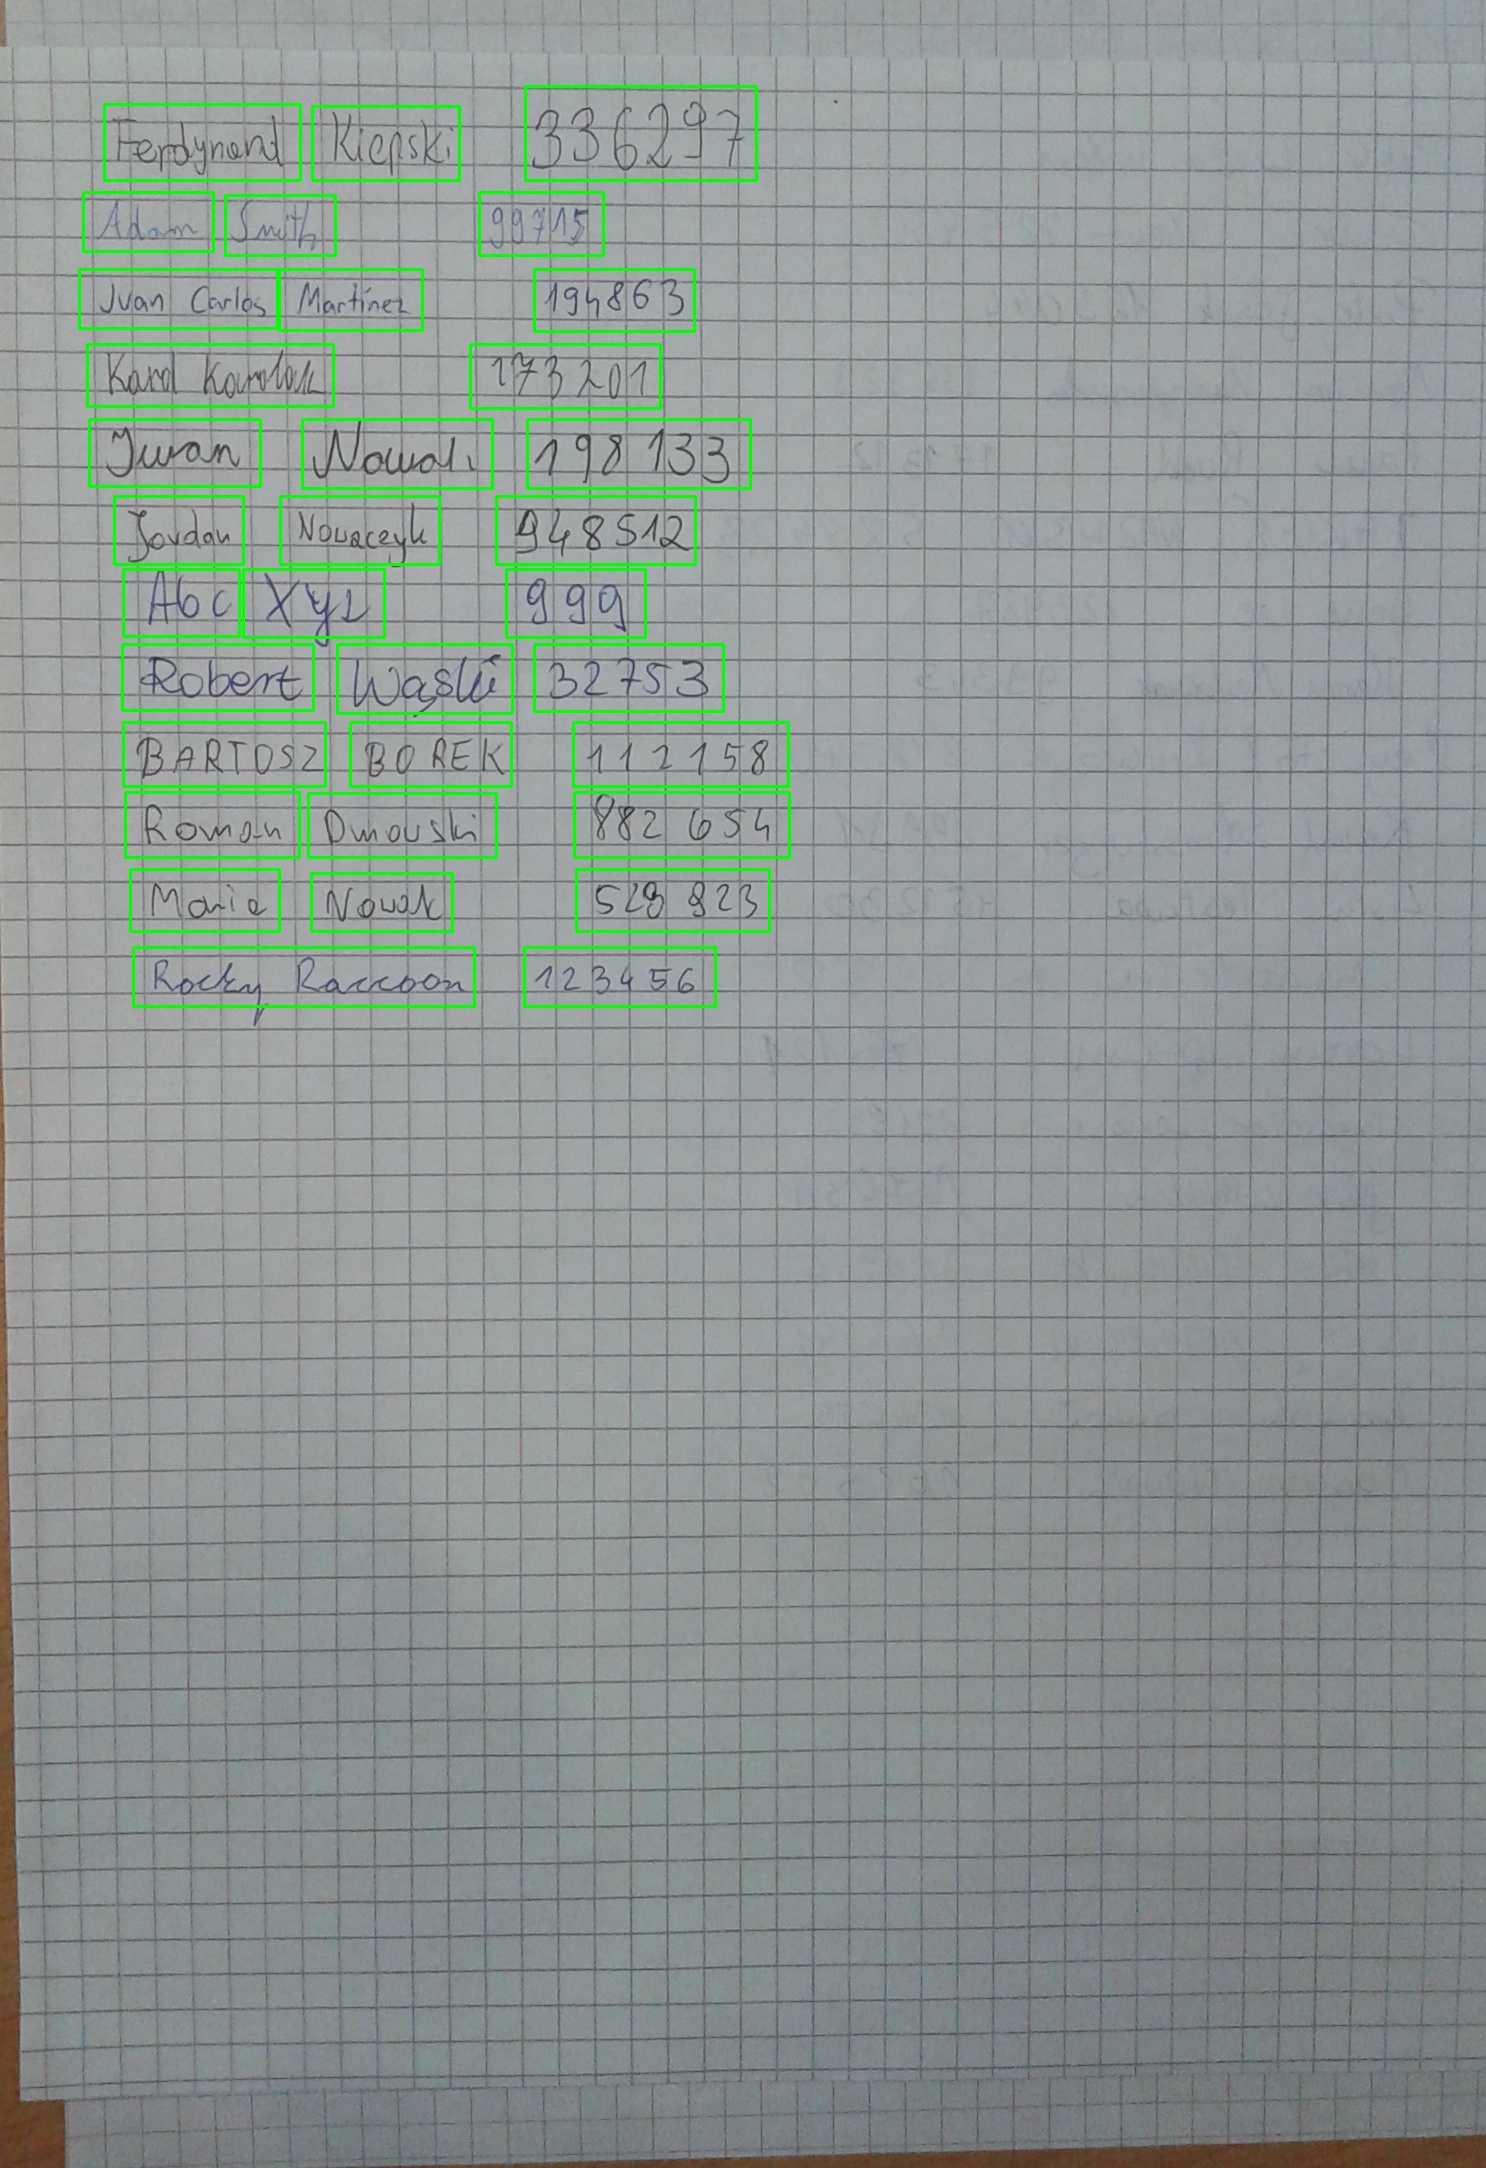 Ferdynand Kiepski 336297
Adam Smith 99715
Juan Carlos Martinez 194863
Karol Karolak 173201
Iwan Nowak 198 133
Jordan Nowaczyk 948512
Abc Xyz 999
Robert Wąski 32753
BARTOSZ BOREK 112158
Roman Dmowski 882 654
Maria Nowak 529 823
Rocky Raccoon 123456